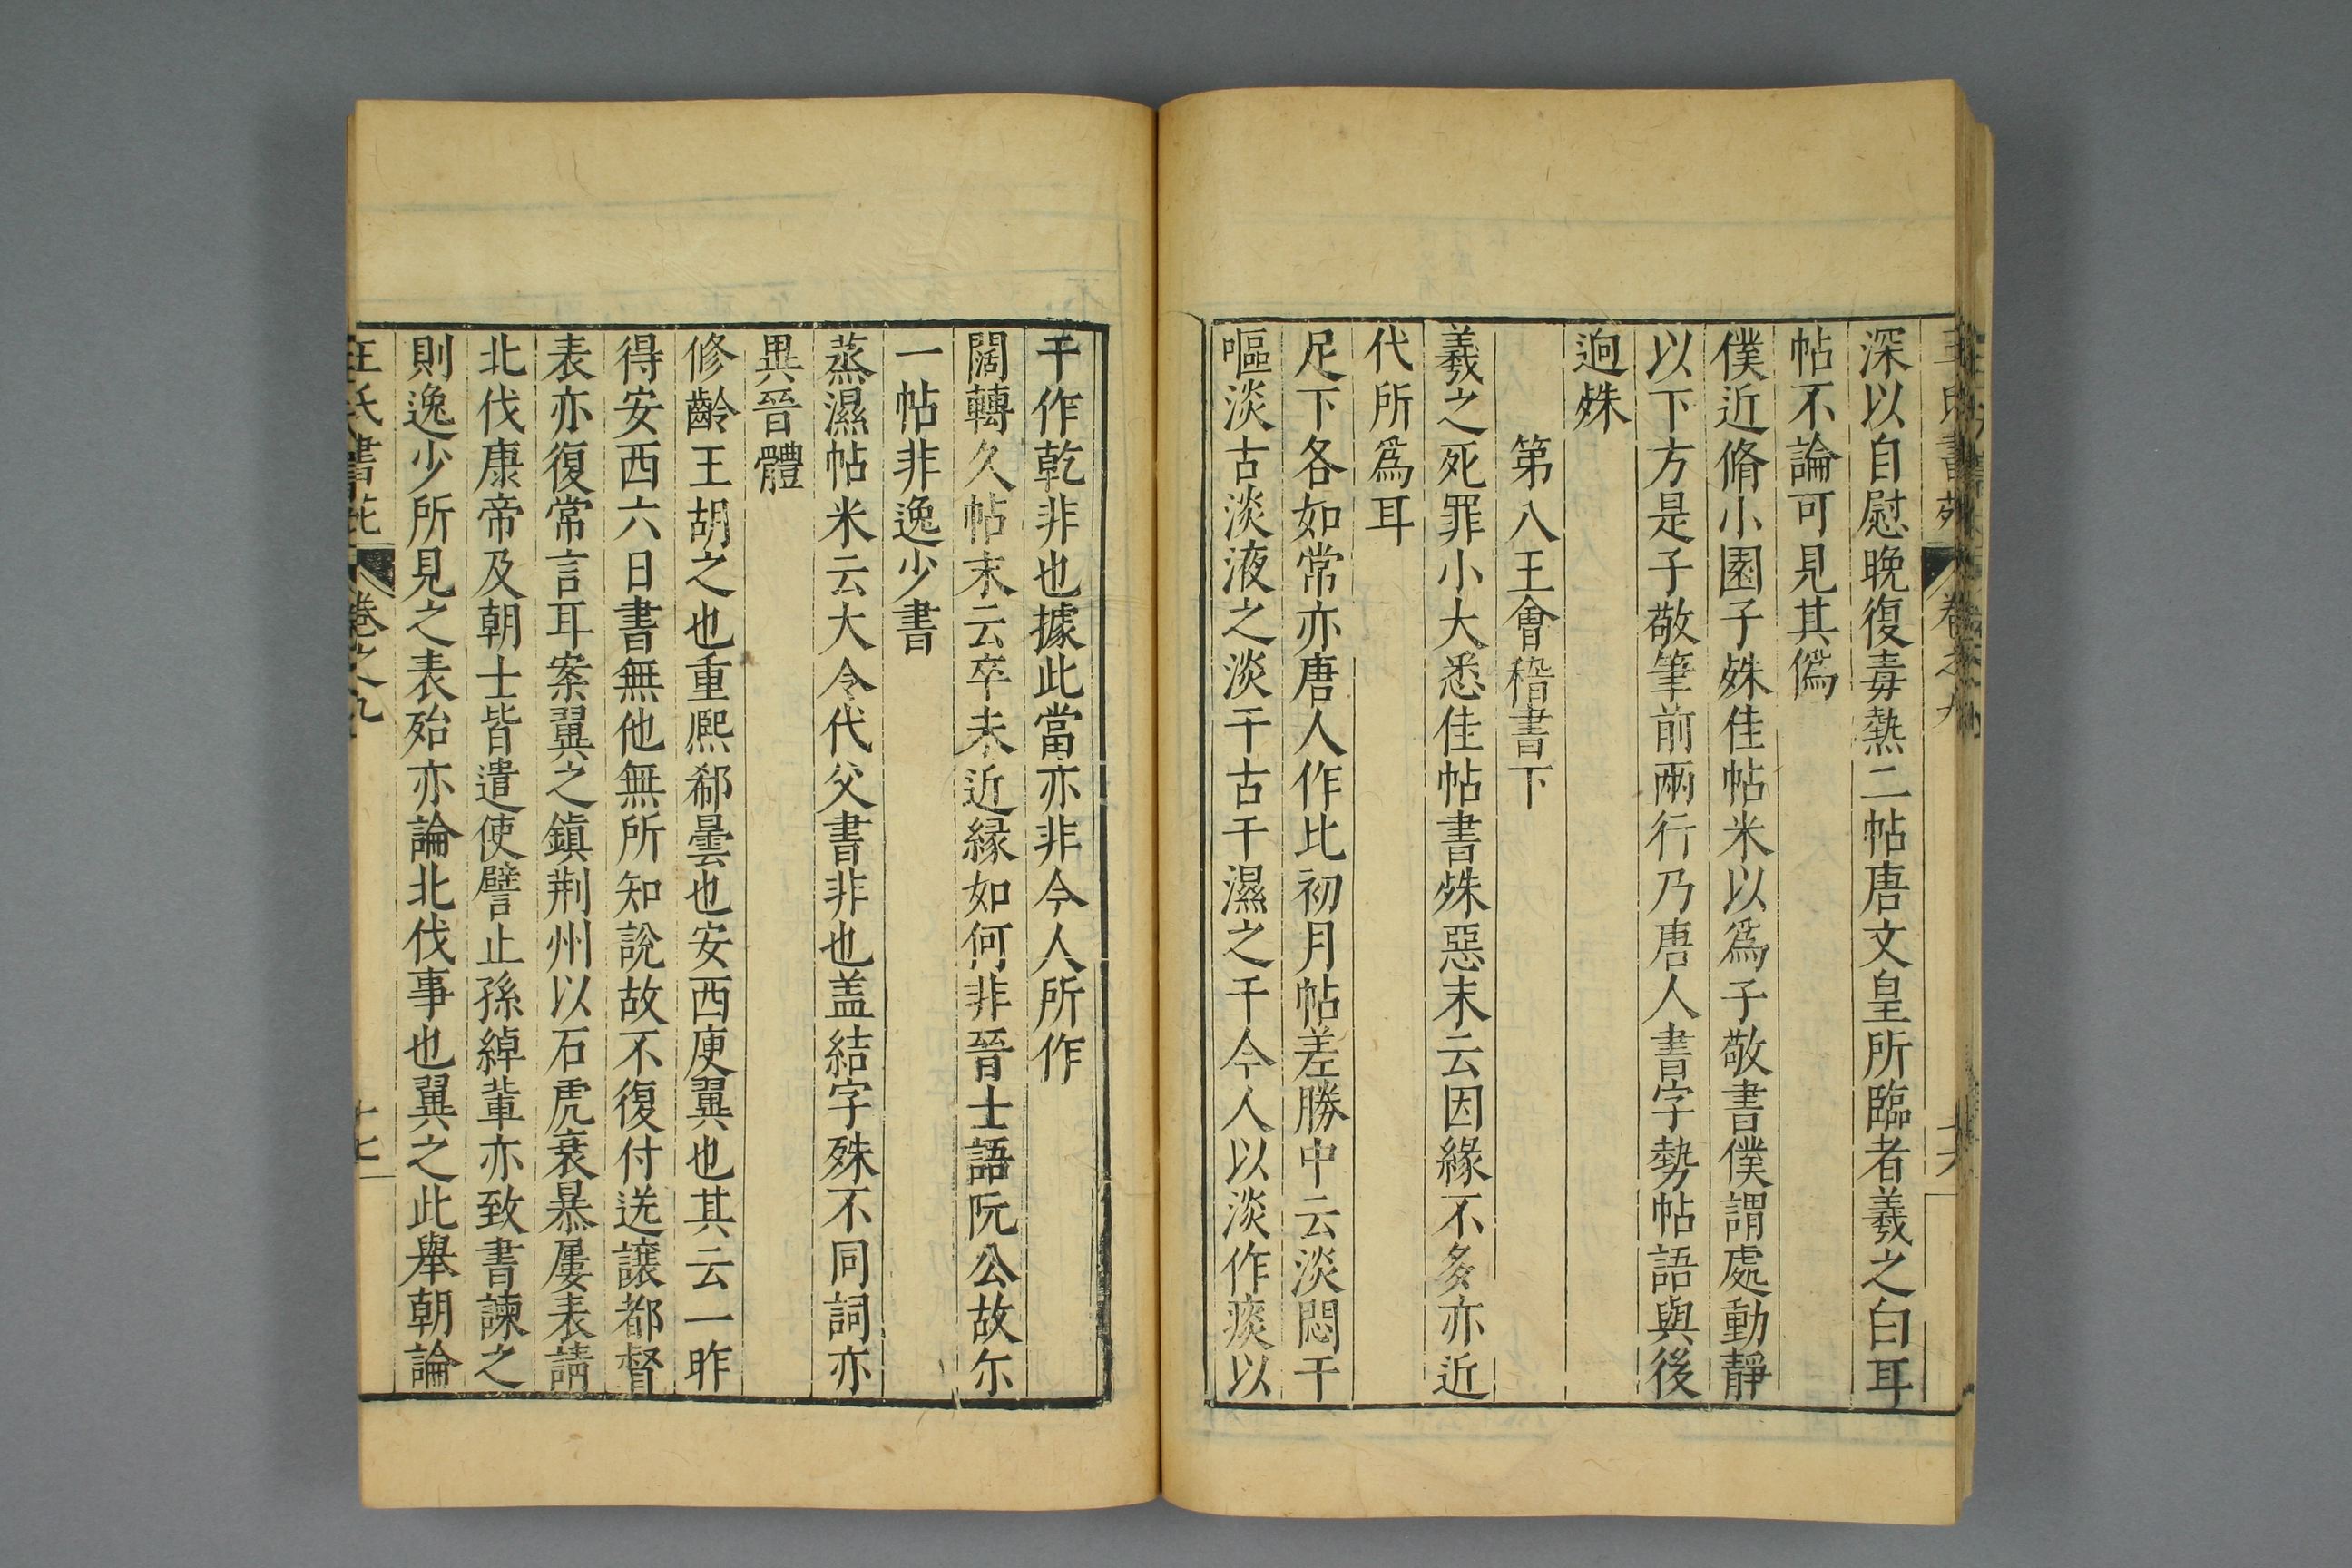 深以自慰晚復毒熱二帖唐文皇所臨者羲之白耳
帖不論可見其僞
僕近脩小園子殊佳帖米以爲子敬書僕謂處動靜
以下方是子敬筆前兩行乃唐人書字勢帖語與後
逈殊
第八王會稽書下
羲之死罪小大悉佳帖書殊惡末云因緣不多亦近
代所爲耳
足下各如常亦唐人作比初月帖差勝中云淡悶干
嘔淡古淡液之淡干古干濕之干今人以淡作痰以
干作乾非也據此當亦非今人所作
闊轉久帖末云卒未近緣如何非晉士語阮公故尔
一帖非逸少書
蒸濕帖米云大令代父書非也盖結字殊不同詞亦
異晉體
修齡王胡之也重熈郗曇也安西庾翼也其云一昨
得安西六日書無他無所知說故不復付送讓都督
表亦復常言耳案翼之鎮荆州以石虎衰暴屢表請
北伐康帝及朝士皆遣使譬止孫綽輩亦致書諫之
則逸少所見之表殆亦論北伐事也翼之此舉朝論
王氏書苑
卷之九
十七